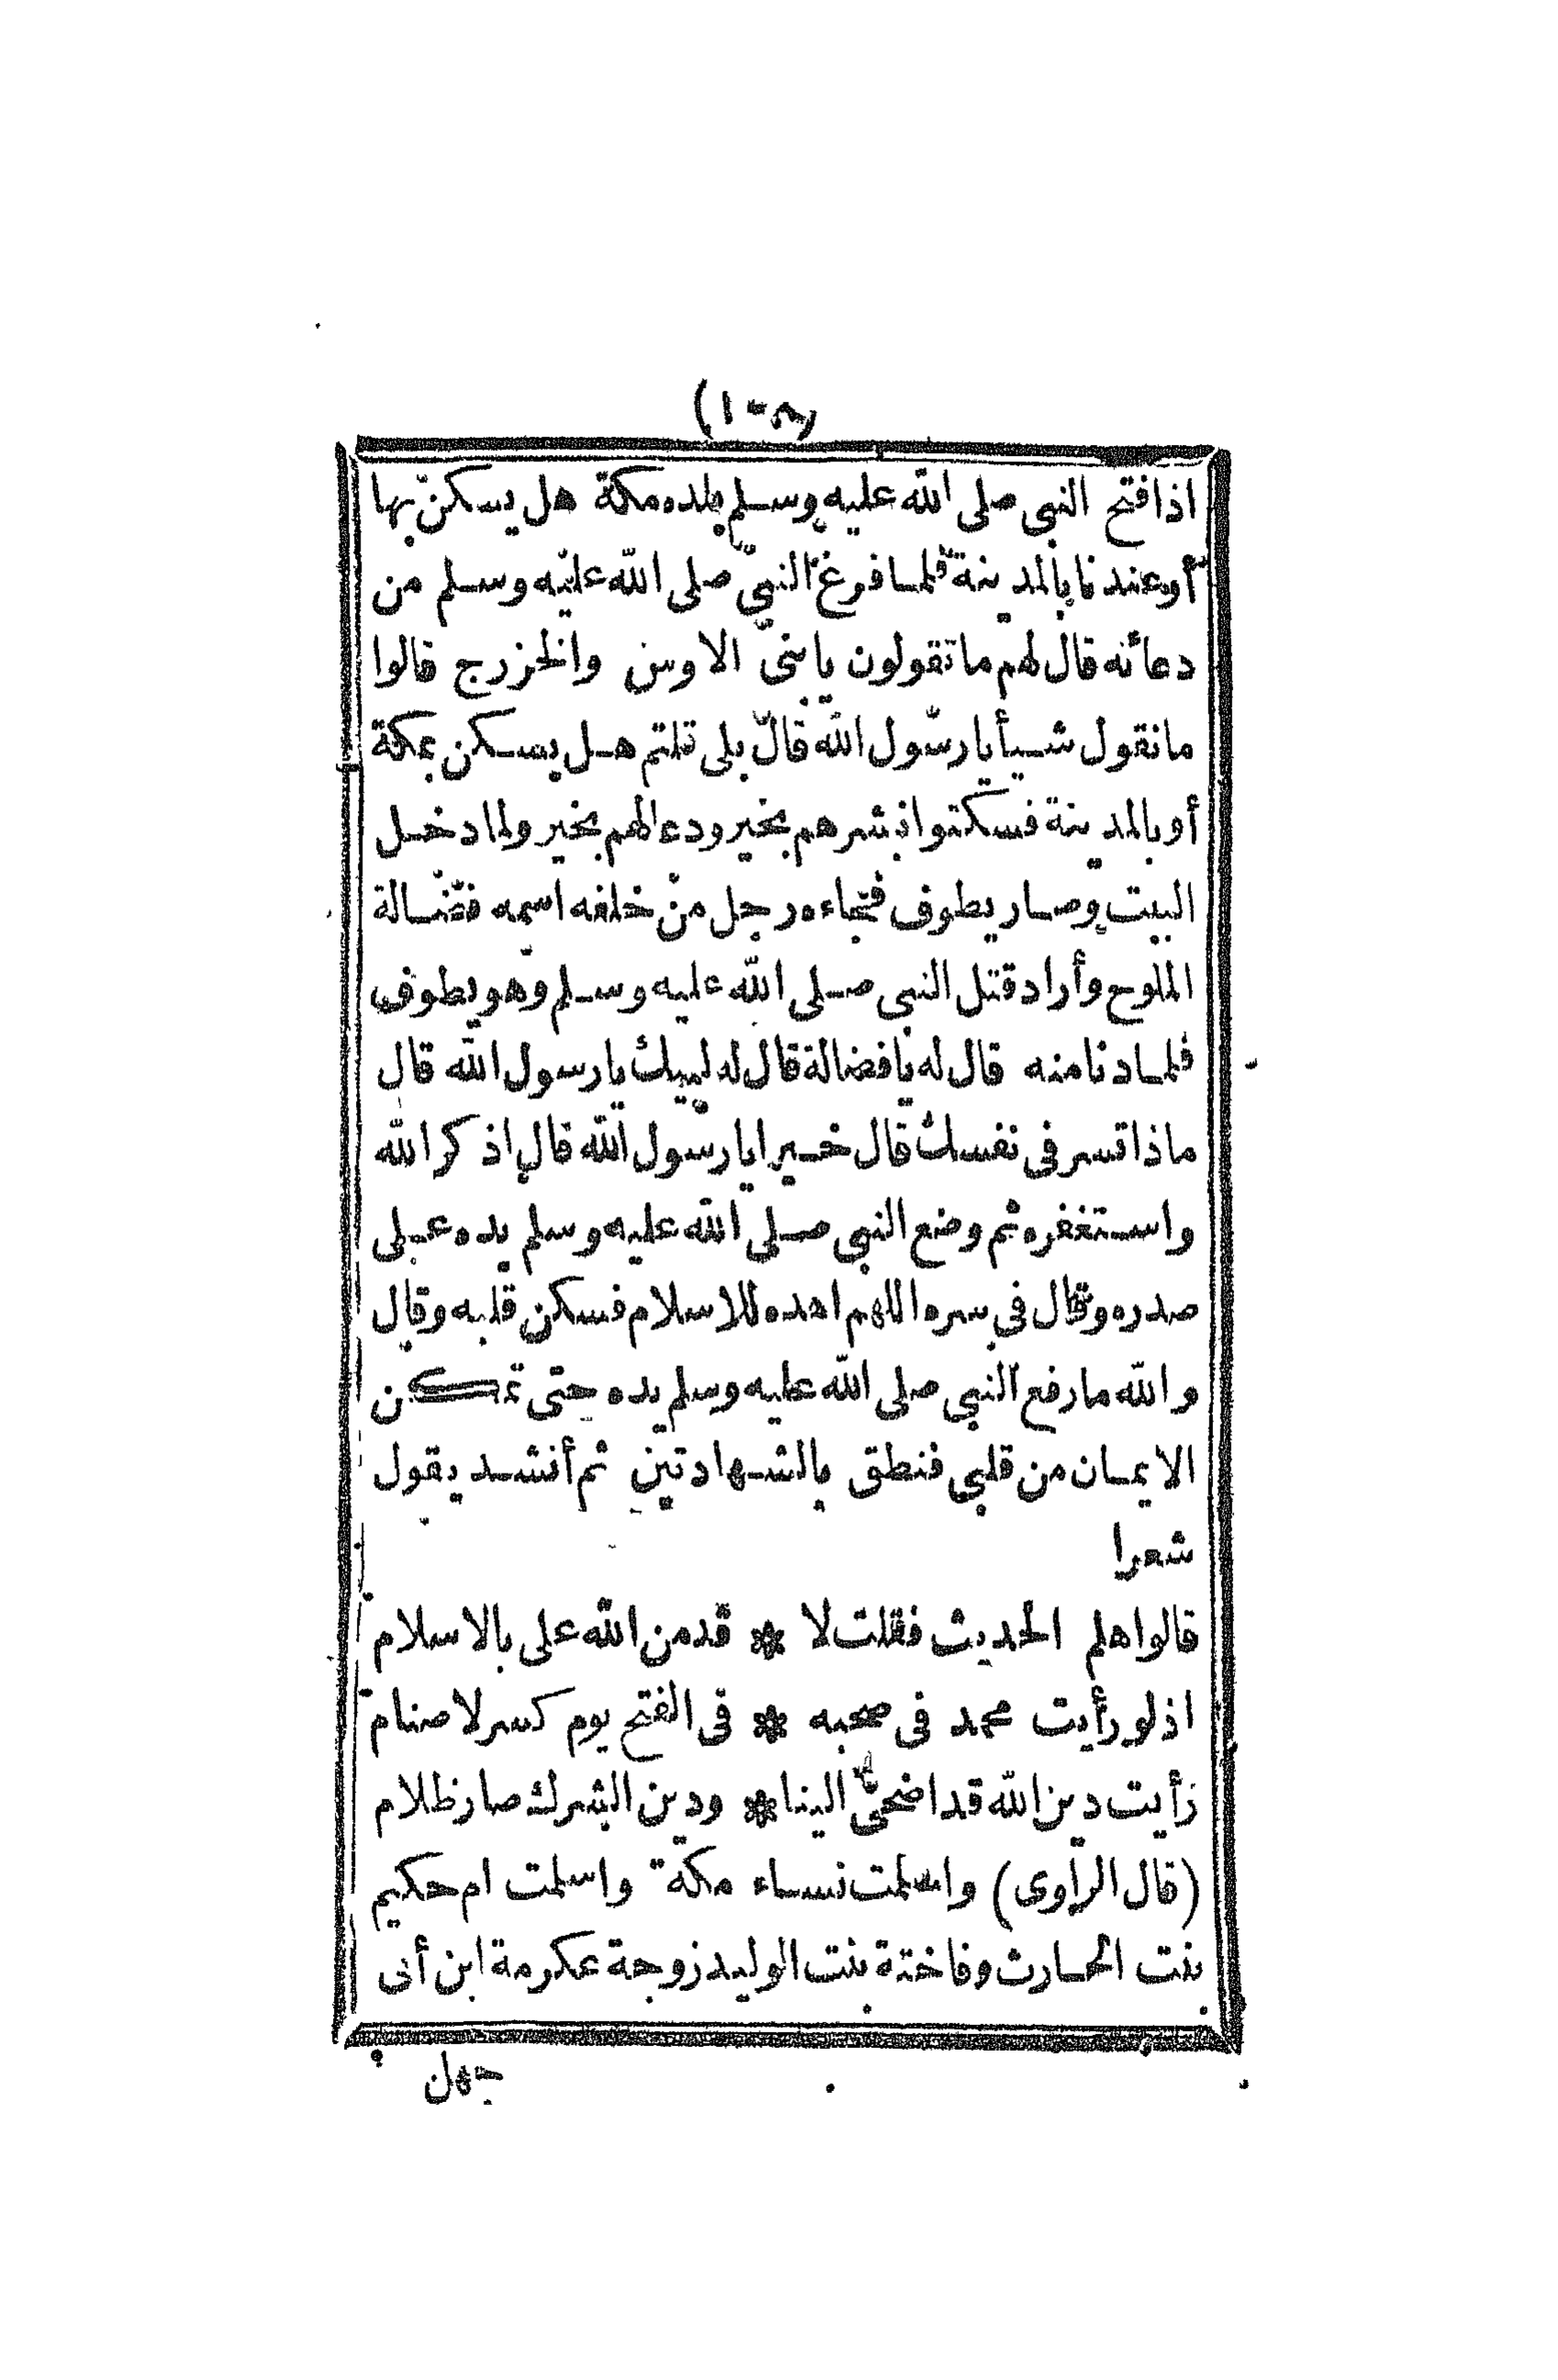 اذا فتح النبى صلى الله عليه وسلم بلده مكة هل يسكن بها
أو عندنا بالمدينة فلما فرغ النبى صلى الله عليه وسلم من
دعائه قال لهم ما تقولون يا بنى الاوس والخزرج قالوا
ما نقول شيأ يا رسول الله قال بلى قلتم هل يسكن بمكة
أو بالمدينة فسكتوا فبشرهم بخير ودعا لهم بخير ولما دخل
البيت وصار يطوف فجاءه رجل من خلفه اسمه فضالة
الملوح وأراد قتل النبى صلى الله عليه وسلم وهو يطوف
فلما دنا منه قال له يا فضالة قال له لبيك يا رسول الله قال
ماذا تسر فى نفسك قال خيرا يا رسول الله قال اذكر الله
واستغفره ثم وضع النبى صلى الله عليه وسلم يده على
صدره وقال فى سره اللهم اهده للاسلام فسكن قلبه وقال
والله ما رفع النبى صلى الله عليه وسلم يده حتى تمكن
الايمان من قلبى فنطق بالشهادتين ثم أنشد يقول
شعرا
قالوا هلم الحديث فقلت لا * قد من الله على بالاسلام
اذ لو رأيت محمد فى صحبه * فى الفتح يوم كسر لاصنام
رأيت دين الله قد اضحى الينا * ودين الشرك صار ظلام
(قال الراوى) واسلمت نساء مكة واسلمت ام حكيم
بنت الحارث وفاختة بنت الوليد زوجة عكرمة ابن أبى
جهل